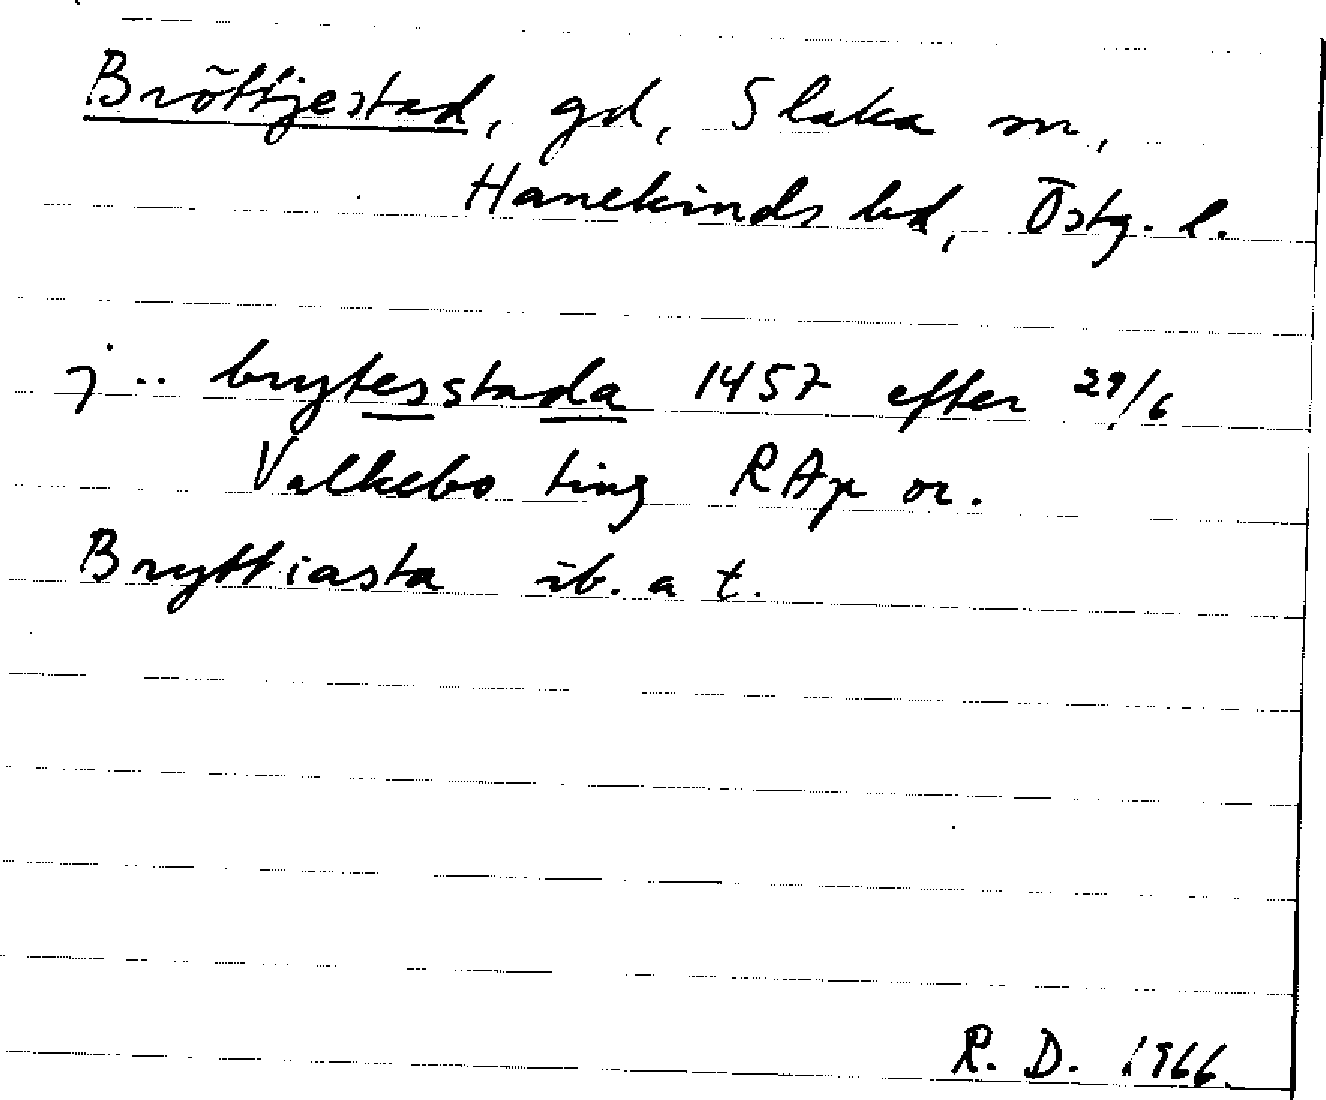 Bröttjestad, gd, Slaka sn,
Hanekinds hd, Östg. l.
j .. brytesstada 1457 efter 29/6
Valkebo ting RAp or.
Bryttiasta ib. a t.
R. D. 1966.